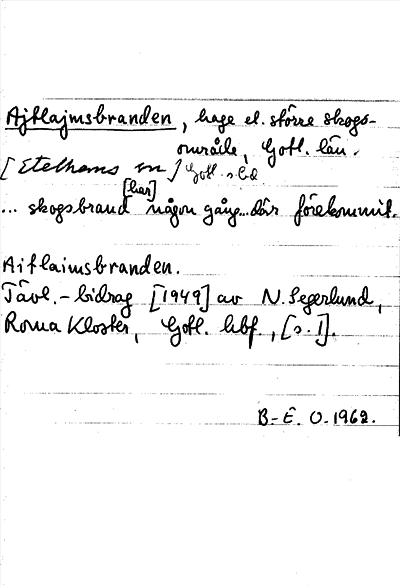 Ajflajmsbranden, hage el. större skogs-
område, Gotl. län.
[Etelhems sn] Gotl. s:a
... skogsbrand [har] någon gång...där förekommit.
Aiflaimsbranden.
Tävl.-bidrag [1949] av N. Segerlund,
Roma Kloster, Gotl. hbf, [s. 1].
B-E. O. 1962.